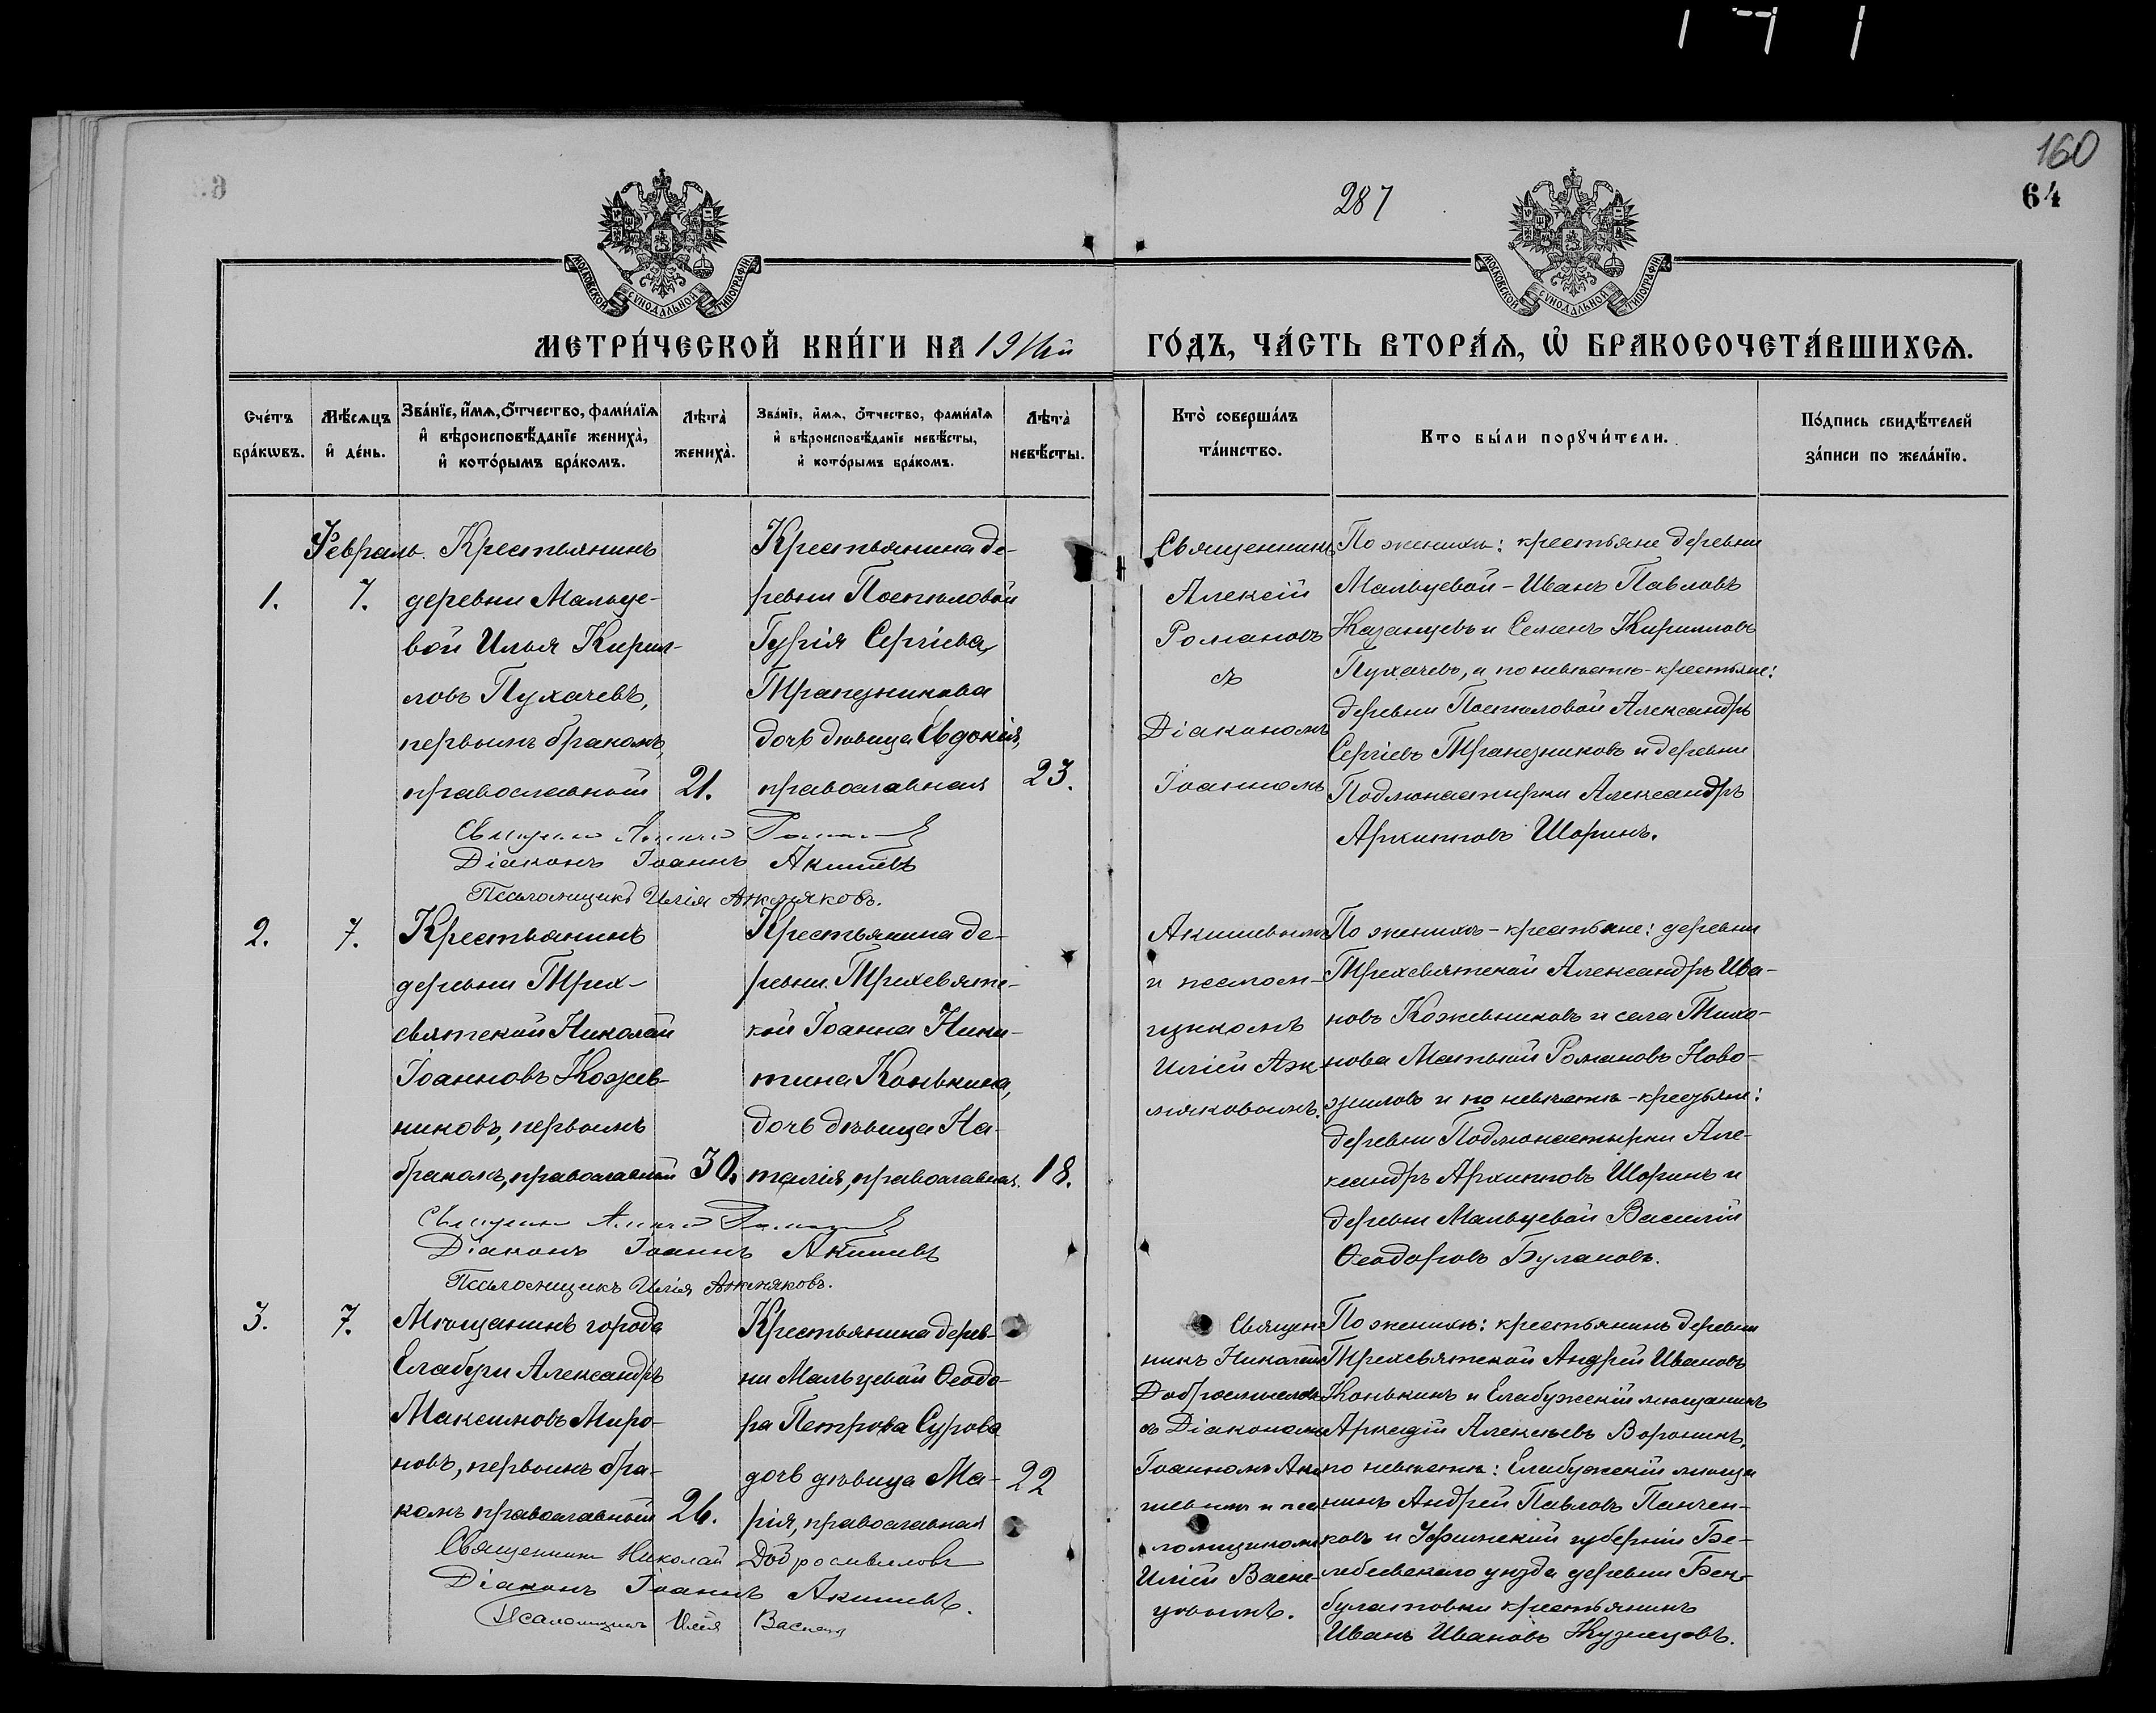 160
287
64
МОСКОВСКОЙ СѴНОДАЛЬНОЙ ТИПОГРАФІИ
МОСКОВСКОЙ СѴНОДАЛЬНОЙ ТИПОГРАФІИ
МЕТРИ́ЧЕСКОЙ КНИ́ГИ НА 19 ГО́ДЪ, ЧА́СТЬ ВТОРА́Ѧ, Ѡ҆ БРАКОСОЧЕТА́ВШИХСѦ.
Сче́тъ бра́кѡвъ.
Мѣ́сѧцъ и҆ де́нь.
Зва́нїе, и҆́мѧ, ѻ҆́тчество, фами́лїѧ и҆ вѣроисповѣ́данїе жениха̀, и҆ кото́рымъ бра́комъ.
Лѣта̀ жениха̀.
Зва́нїе, и҆́мѧ, ѻ҆́тчество, фами́лїѧ и҆ вѣроисповѣ́данїе невѣ́сты, и҆ кото́рымъ бра́комъ.
Лѣта̀ невѣ́сты.
Кто̀ соверша́лъ та́инство.
Кто бы́ли порꙋчи́тели.
По́дпись свидѣ́телей за́писи по жела́нїю.
Февраль.
1.
7.
Крестьянинъ
деревни Мальце-
вой Илья Кирил-
ловъ Пухачевъ,
первымъ бракомъ,
православный
21.
Крестьянина де-
ревни Поспѣловой
Гурія Сергіева
Трапезникова
дочь дѣвица Евдокія,
православная
23.
Священникъ
Алексій
Романовъ
съ
Діакономъ
Іоанномъ
По женихѣ: крестьяне деревни
Мальцевой - Иванъ Павловъ
Казанцевъ и Семенъ Кирилловъ
Пухачевъ, а по невѣстѣ - крестьяне:
деревни Поспѣловой Александръ
Сергіевъ Трапезниковъ и деревни
Подмонастырки Александръ
Архиповъ Шоринъ.
Священникъ Алексій Романовъ
Діаконъ Іоаннъ Акишевъ
Псаломщикъ Илія Ажмяковъ.
2.
7.
Крестьянинъ
деревни Трех-
святской Николай
Іоанновъ Кожев-
никовъ, первымъ
бракомъ, православный
30.
Крестьянина де-
ревни Трехсвятс-
кой Іоанна Ники-
тина Конькина,
дочь дѣвица На-
талія, православная.
18.
Акишевымъ
и псалом-
щикомъ
Иліей Аж-
мяковымъ.
По женихѣ - крестьяне: деревни
Трехсвятской Александръ Ива-
новъ Кожевниковъ и села Тихо-
нова Матвѣй Романовъ Ново-
жиловъ и по невѣстѣ - крестьяне:
деревни Подмонастырки Але-
ксандръ Архиповъ Шоринъ и
деревни Мальцевой Василій
Ѳеодоровъ Булановъ.
Священникъ Алексій Романовъ
Діаконъ Іоаннъ Акишевъ
Псаломщикъ Илія Ажмяковъ.
3.
7.
Мѣщанинъ города
Елабуги Александръ
Максимовъ Миро-
новъ, первымъ бра-
комъ православный
26.
Крестьянина дерев-
ни Мальцевой Ѳеодо-
ра Петрова Сурова
дочь дѣвица Ма-
рія, православная
22
Священ-
никъ Николай
Добросмысловъ
съ Діакономъ
Іоанномъ Аки-
шевымъ и пса-
ломщикомъ
Иліей Васне-
цовымъ.
По женихѣ: крестьянинъ деревни
Трехсвятской Андрей Ивановъ
Конькинъ и Елабужскій мѣщанинъ
Аркадій Алексѣевъ Воронинъ,
по невѣстѣ: Елабужскій мѣща
нинъ Андрей Павловъ Панчен-
ковъ и Уфимской губерніи Бе-
лебеевскаго уѣзда деревни Бек-
булатовки крестьянинъ
Иванъ Ивановъ Кузнецовъ.
Священникъ Николай Добросмысловъ
Діаконъ Іоаннъ Акишевъ.
Псаломщикъ Илія Васнецовъ